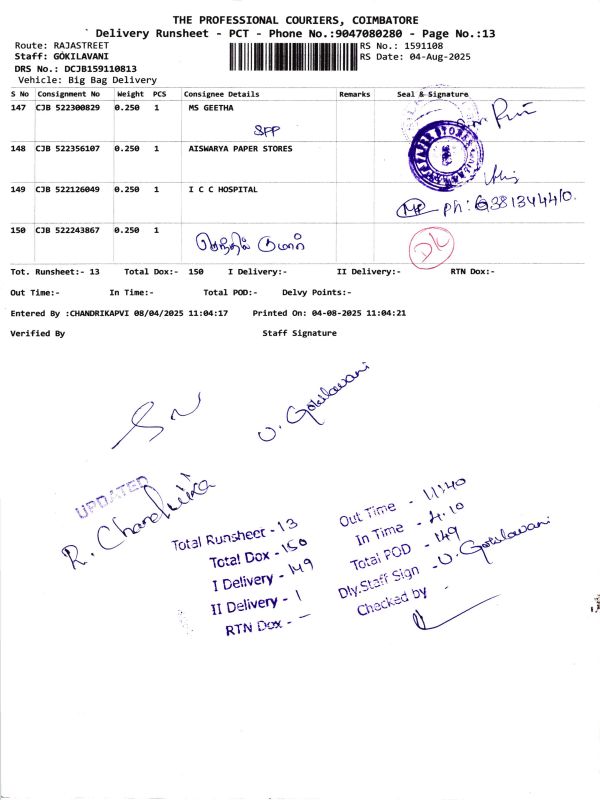 THE PROFESSIONAL COURIERS, COIMBATORE
` Delivery Runsheet - PCT - Phone No.:9047080280 - Page No.:13
Route: RAJASTREET RS No.: 1591108
Staff: GOKILAVANI RS Date: 04-Aug-2025
DRS No.: DCJB159110813
Vehicle: Big Bag Delivery
S No Consignment No Weight PCS Consignee Details Remarks Seal & Signature
147 CJB 522300829 0.250 1 MS GEETHA
SPP
148 CJB 522356107 0.250 1 AISWARYA PAPER STORES
149 CJB 522126049 0.250 1 I C C HOSPITAL
ph: 6381344410.
150 CJB 522243867 0.250 1
செந்தில் குமார்
DL
Tot. Runsheet:- 13 Total Dox:- 150 I Delivery:- II Delivery:- RTN Dox:-
Out Time:- In Time:- Total POD:- Delvy Points:-
Entered By :CHANDRIKAPVI 08/04/2025 11:04:17 Printed On: 04-08-2025 11:04:21
Verified By Staff Signature
U. Gokilavani
UPDATED
R. Chandrika
Total Runsheet - 13 Out Time - 11:40
Total Dox - 150 In Time - 4.10
I Delivery - 149 Total POD - 149
II Delivery - 1 Dly.Staff Sign - U. Gokilavani
RTN Dox - — Checked by -